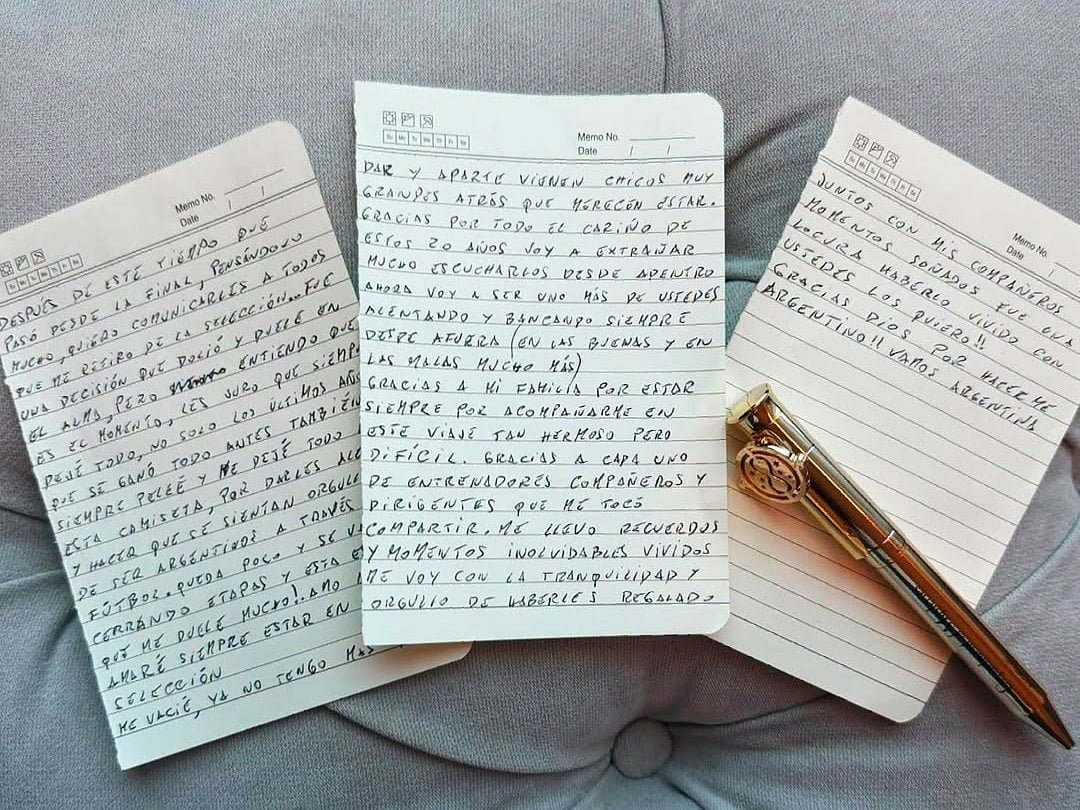 Memo No.
Date / /
DESPUÉS DE ESTE TIEMPO QUÉ
PASÓ DESDE LA FINAL, PENSÁNDOLO
MUCHO, QUIERO COMUNICARLES A TODOS
QUE ME RETIRO DE LA SELECCIÓN... FUE
UNA DECISIÓN QUE DOLIÓ Y DUELE EN
EL ALMA, PERO ENTIENDO QUE
ES EL MOMENTO, LES JURO QUE SIEMP
DEJÉ TODO, NO SOLO LOS ÚLTIMOS AÑOS
QUE SE GANÓ TODO ANTES TAMBIÉN
SIEMPRE PELEÉ Y ME DEJÉ TODO
ESTA CAMISETA, POR DARLES
Y HACER QUE SE SIENTAN ORGULL
DE SER ARGENTINOS A TRAVÉS
FÚTBOL. QUEDA POCO Y SE VA
CERRANDO ETAPAS Y ESTA
QUE ME DUELE MUCHO! AMO
AMARÉ SIEMPRE ESTAR EN
SELECCIÓN
ME VACIÉ, YA NO TENGO MAS
Su Mo Tu We Th Fr Sa
Memo No.
Date / /
DAR Y APARTE VIENEN CHICOS MUY
GRANDES ATRÁS QUE MERECEN ESTAR.
GRACIAS POR TODO EL CARIÑO DE
ESTOS 20 AÑOS VOY A EXTRAÑAR
MUCHO ESCUCHARLOS DESDE ADENTRO
AHORA VOY A SER UNO MÁS DE USTEDES
ALENTANDO Y BANCANDO SIEMPRE
DESDE AFUERA (EN LAS BUENAS Y EN
LAS MALAS MUCHO MÁS)
GRACIAS A MI FAMILIA POR ESTAR
SIEMPRE POR ACOMPAÑARME EN
ESTE VIAJE TAN HERMOSO PERO
DIFÍCIL. GRACIAS A CADA UNO
DE ENTRENADORES COMPAÑEROS Y
DIRIGENTES QUE ME TOCÓ
COMPARTIR. ME LLEVO RECUERDOS
Y MOMENTOS INOLVIDABLES VIVIDOS
ME VOY CON LA TRANQUILIDAD Y
ORGULLO DE HABERLES REGALADO
Memo No.
Date /
JUNTOS CON MIS COMPAÑEROS
MOMENTOS SOÑADOS FUE UNA
LOCURA HABERLO VIVIDO CON
USTEDES LOS QUIERO!!
GRACIAS DIOS POR HACERME
ARGENTINO!! VAMOS ARGENTINA